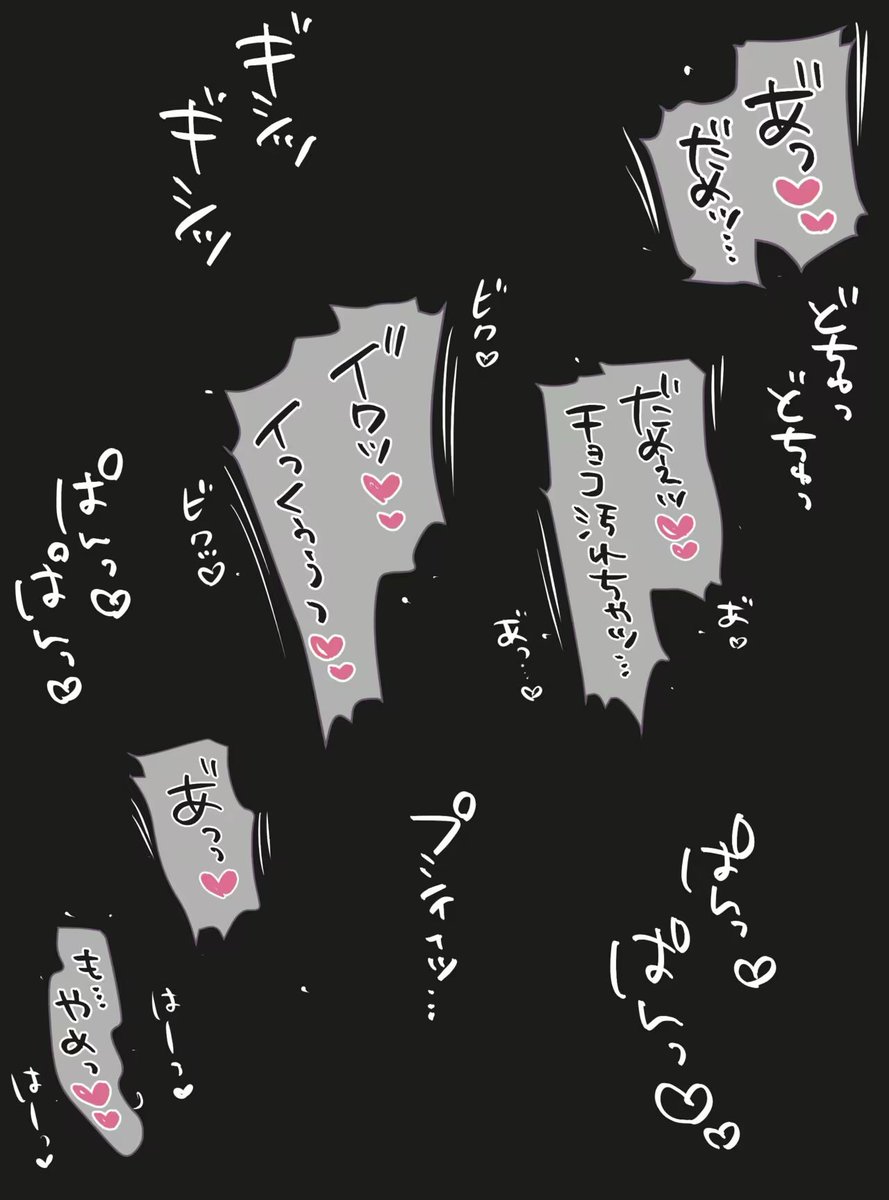 あ゛っ♥♥
だめッ…
どちゅっ
どちゅっ
ギシッ
ギシッ
だめぇッ♥♥
チョコ汚れちゃッ…
お゛♡
あ゛っ…♡
ビク♡
イ゛クッ♥♥
イっくぅぅっ♥♥
ビク…♡
ぱんっ♡
ぱんっ♡
ぱんっ♡
ぱんっ♡♡
プシィィッ…
あ゛っっ♥
も…
やめっ♥♥
はーっ♥
はーっ♥